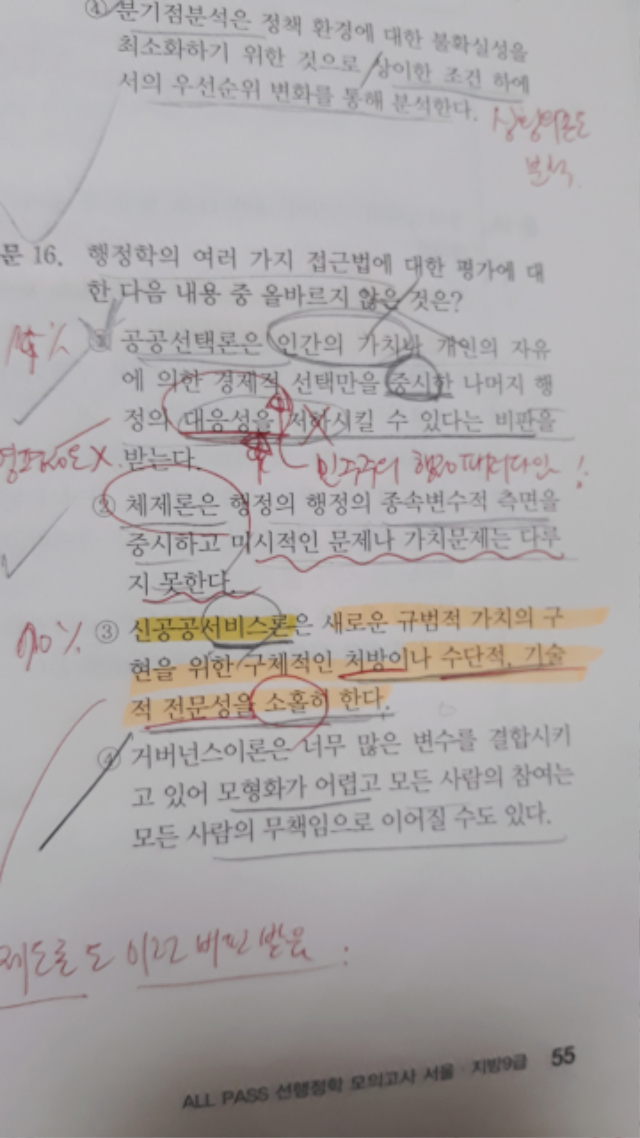 ④ 분기점분석은 정책 환경에 대한 불확실성을
최소화하기 위한 것으로 상이한 조건 하에
서의 우선순위 변화를 통해 분석한다.
분석.
문 16. 행정학의 여러 가지 접근법에 대한 평가에 대
한 다음 내용 중 올바르지 않은 것은?
① 공공선택론은 인간의 가치나 개인의 자유
에 의한 경제적 선택만을 중시한 나머지 행
정의 대응성을 저하시킬 수 있다는 비판을
받는다.
② 체제론은 행정의 행정의 종속변수적 측면을
중시하고 미시적인 문제나 가치문제는 다루
지 못한다.
90% ③ 신공공서비스론은 새로운 규범적 가치의 구
현을 위한 구체적인 처방이나 수단적, 기술
적 전문성을 소홀히 한다.
④ 거버넌스이론은 너무 많은 변수를 결합시키
고 있어 모형화가 어렵고 모든 사람의 참여는
모든 사람의 무책임으로 이어질 수도 있다.
제도론도 이라고 비판 받음
ALL PASS 선행정학 모의고사 서울·지방9급 55